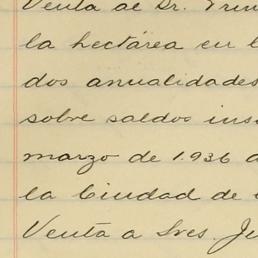 Venta al Dr.
la hectárea en
dos anualidades
sobre saldos
marzo de 1.936
la Ciudad de
Venta a Sres.